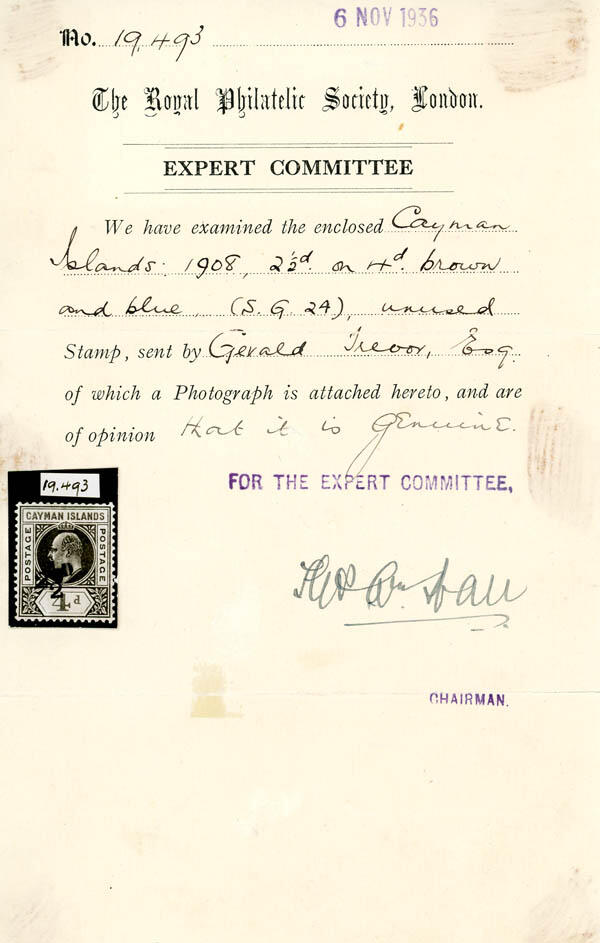 6 NOV 1936
No. 19,493
The Royal Philatelic Society, London.
EXPERT COMMITTEE
We have examined the enclosed Cayman
Islands: 1908, 2½d. on 4d. brown
and blue, (S.G. 24), unused
Stamp, sent by Gerald Trevor, Esq.
of which a Photograph is attached hereto, and are
of opinion that it is genuine.
FOR THE EXPERT COMMITTEE,
19.493
CAYMAN ISLANDS
POSTAGE
POSTAGE
4d
CHAIRMAN.